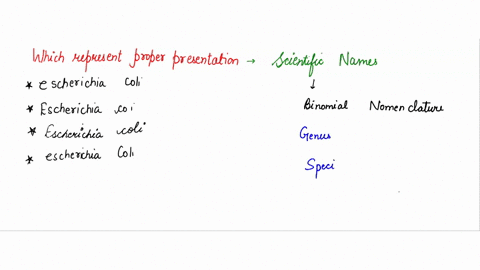 Which represent proper presentation → Scientific Names
* escherichia Coli
* Escherichia coi
* Escherichia coli
* escherichia Coli
↓
Binomial Nomenclature
Genus
Speci